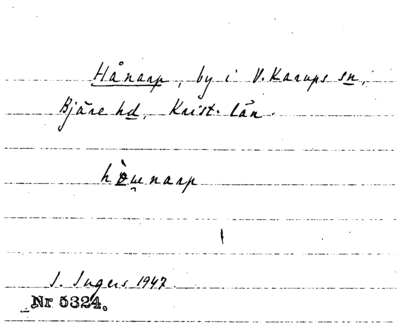 Hånarp, by i V. Karups sn,
Bjäre hd, Krist. län.
I. Ingers 1947
Nr 5324.